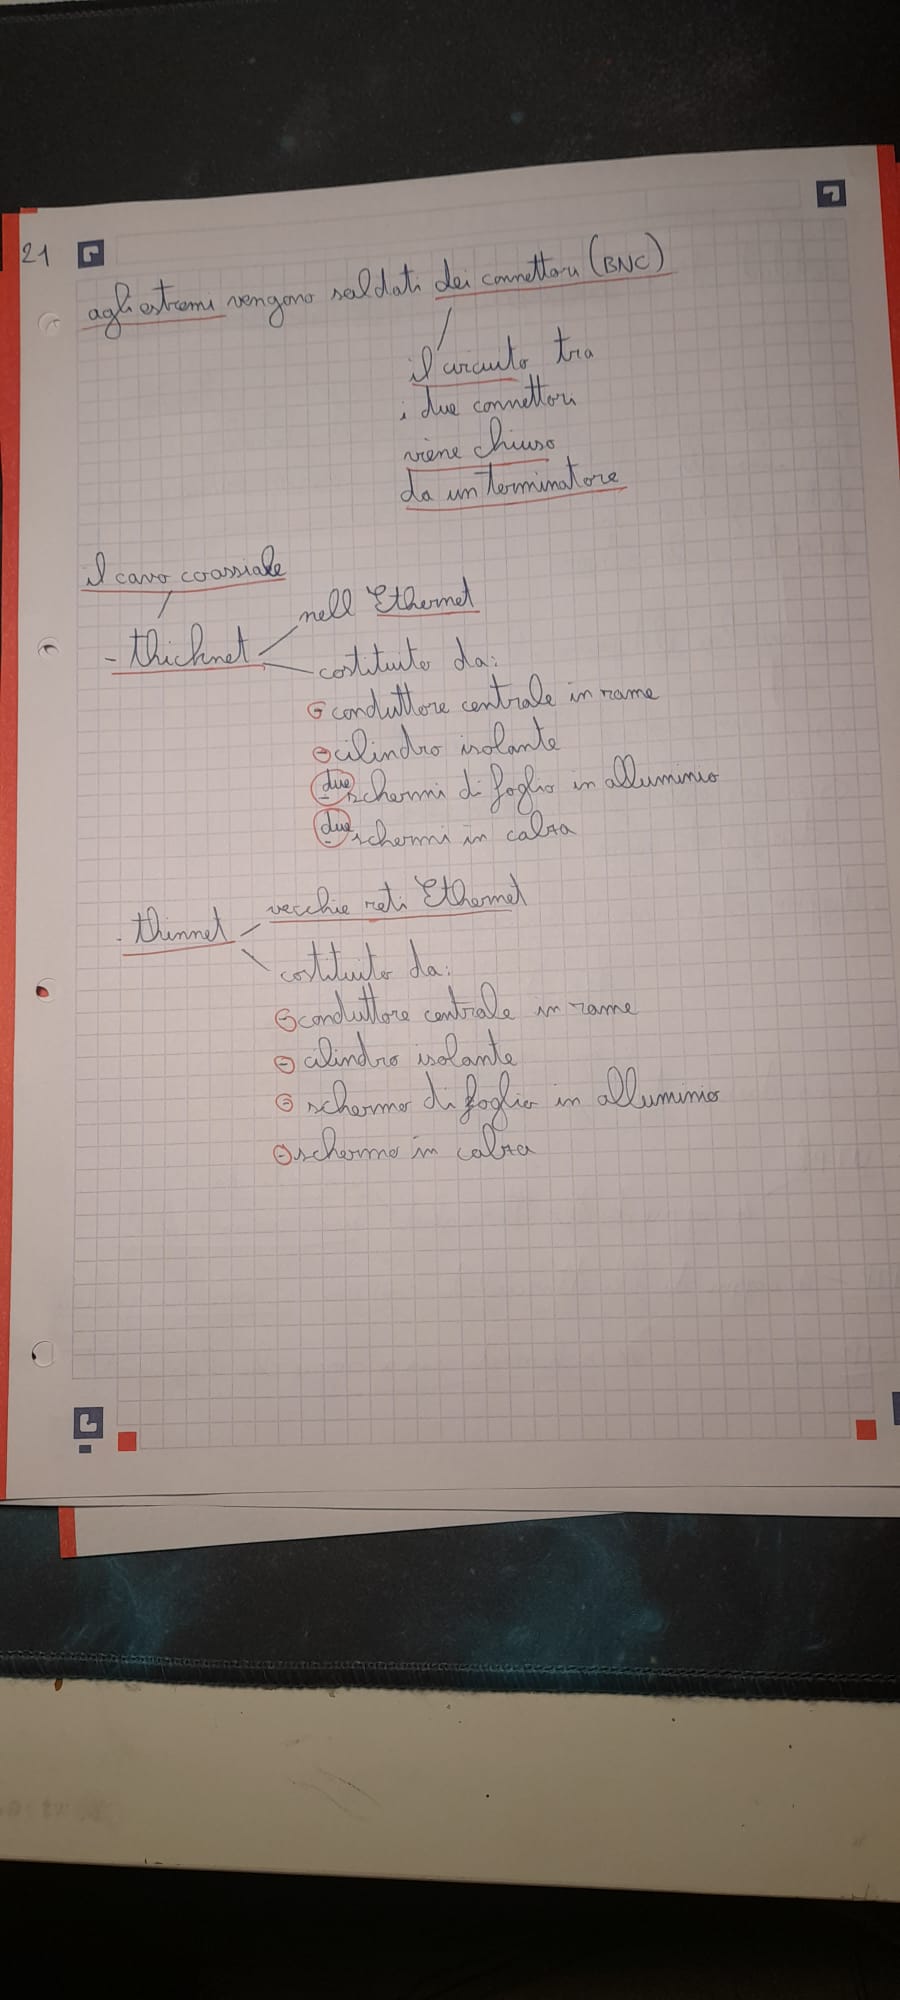 21
agli estremi vengono saldati dei connettori (BNC)
il circuito tra
i due connettori
viene chiuso
da un terminatore
il cavo coassiale
- thicknet
nell Ethernet
costituito da:
- conduttore centrale in rame
- cilindro isolante
- due schermi di foglio in alluminio
- due schermi in calza
- thinnet
vecchie reti Ethernet
costituito da:
- conduttore centrale in rame
- cilindro isolante
- schermo di foglio in alluminio
- schermo in calza